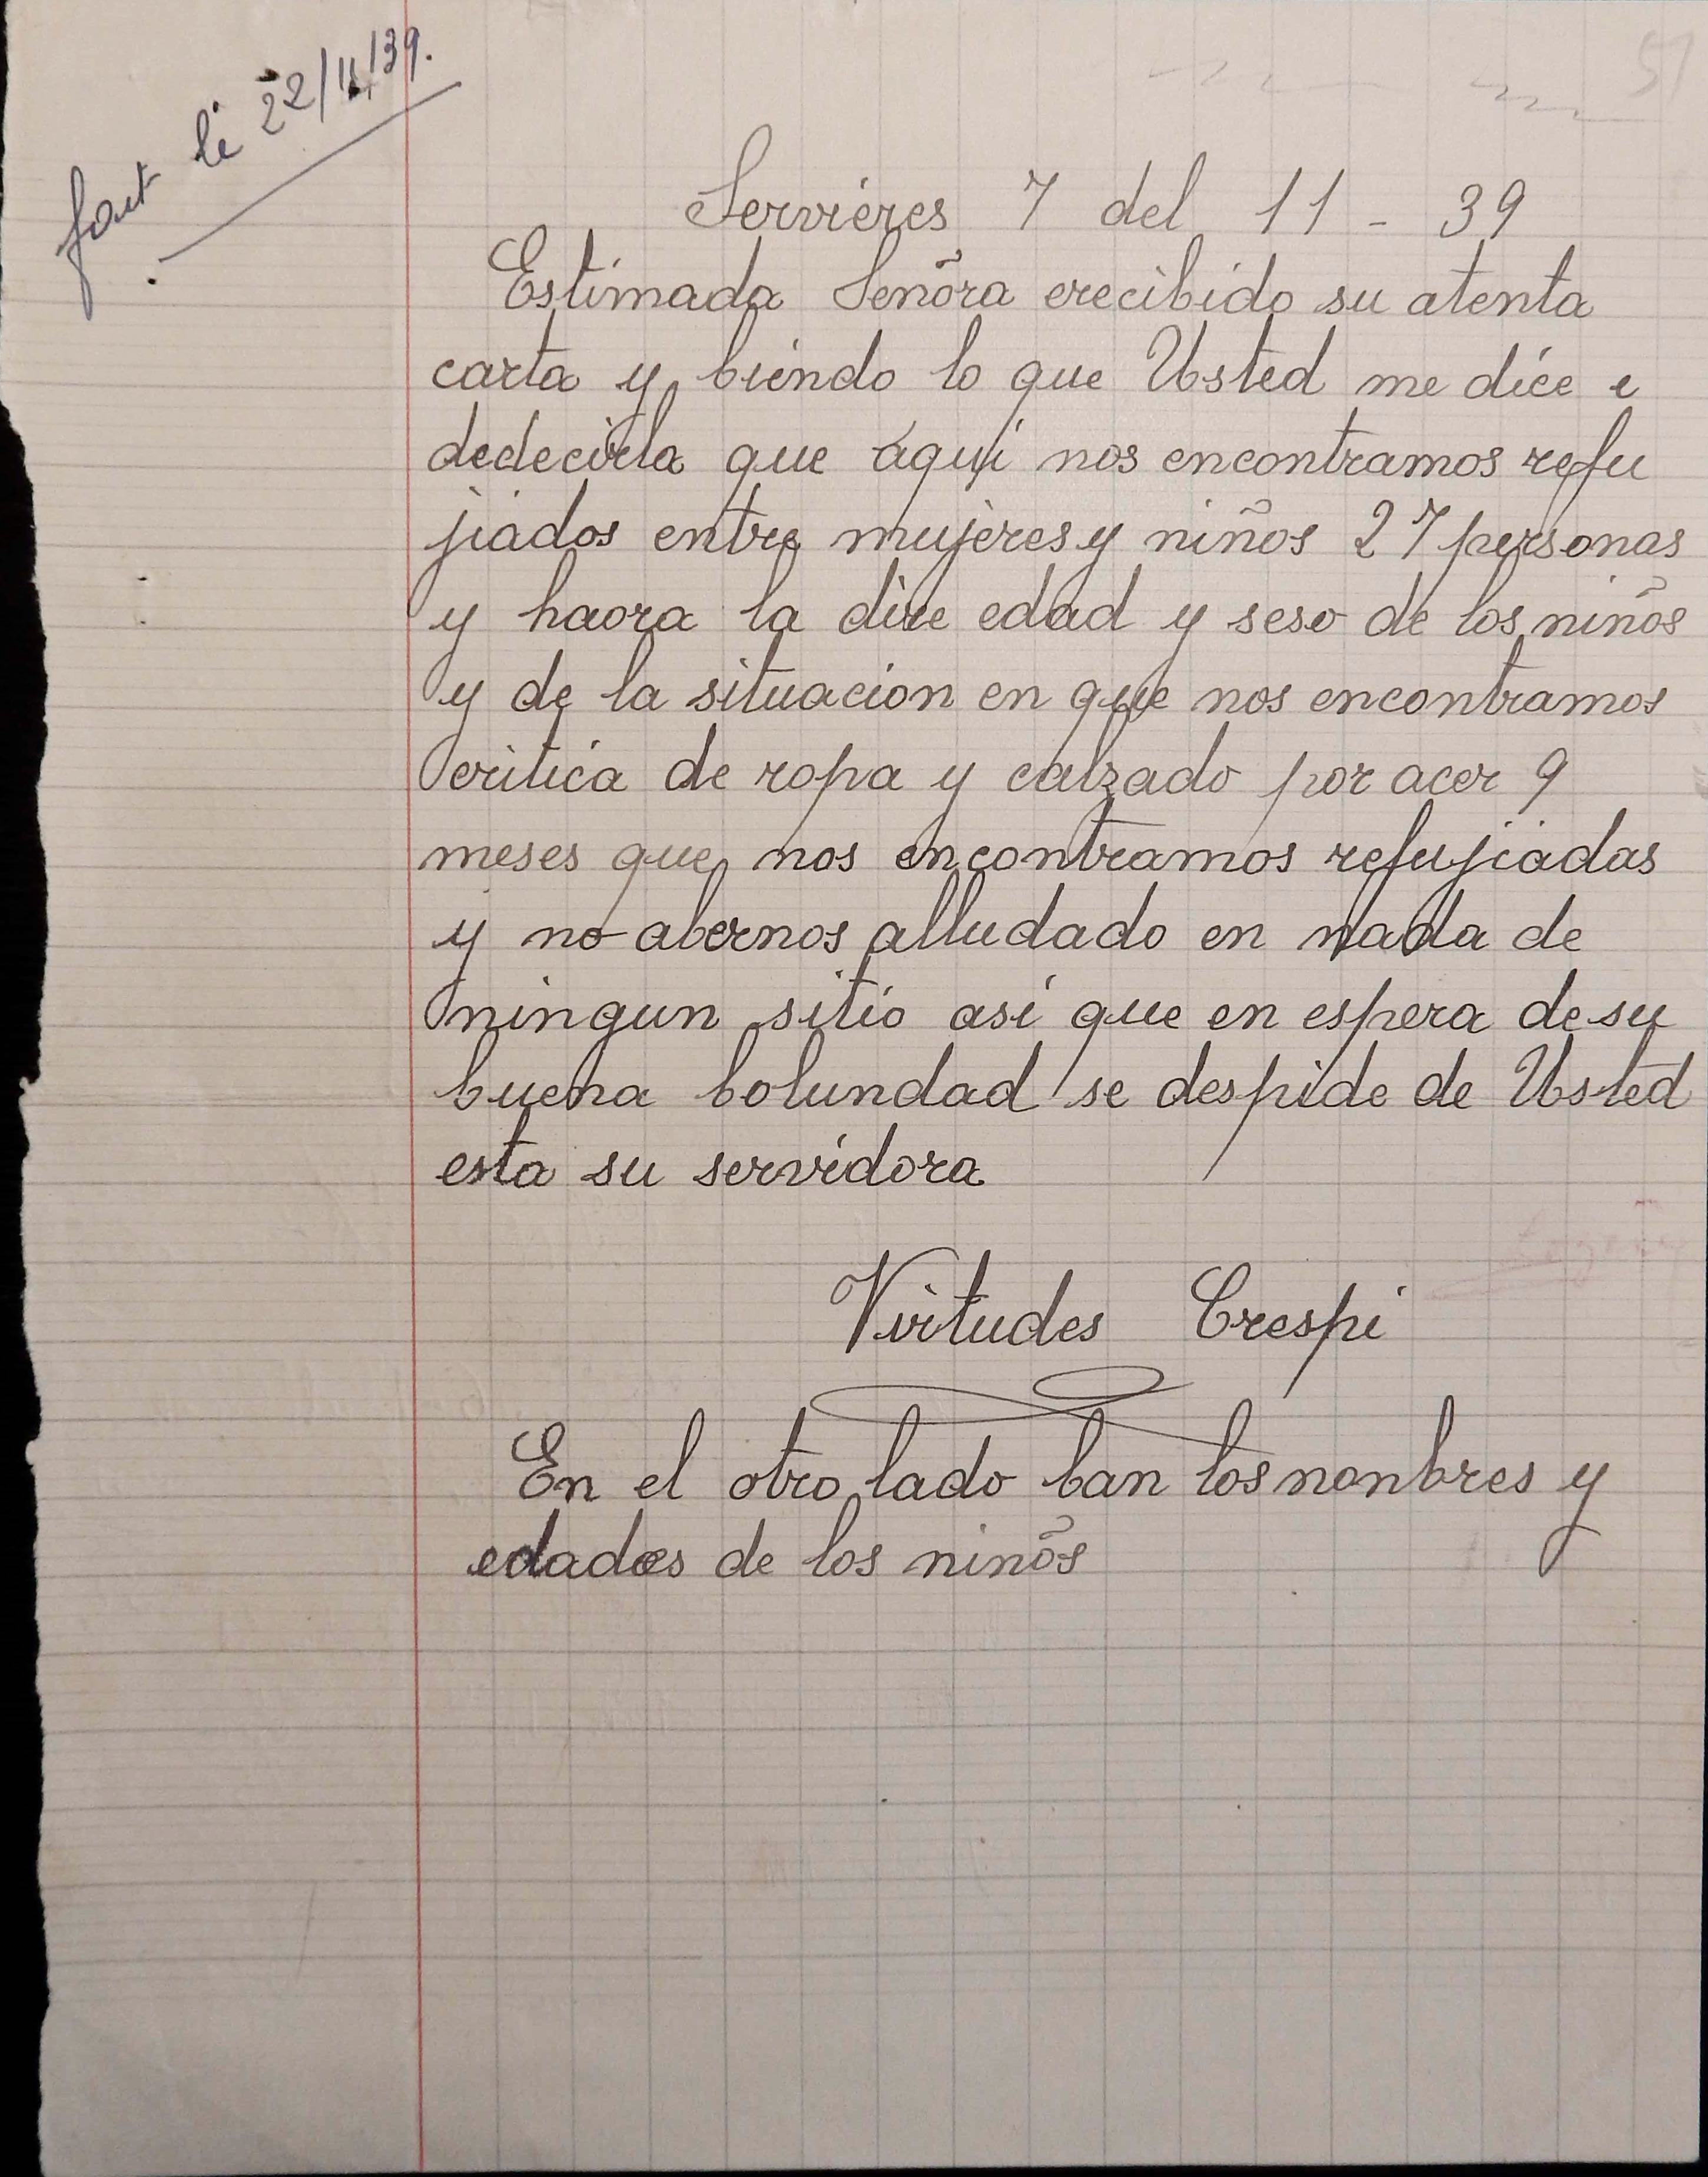 fait le 22/11/39.
Servières 7 del 11 - 39
Estimada Señora erecibido su atenta
carta y biendo lo que Usted me dice e
dedecirla que aqui nos encontramos refu
jiados entre mujeres y niños 27 personas
y haora la dire edad y seso de los niños
y de la situacion en que nos encontramos
critica de ropa y calzado por acer 9
meses que nos encontramos refujiadas
y no abernos alludado en nada de
ningun sitio asi que en espera de su
buena bolundad se despide de Usted
esta su servidora
Virtudes Crespi
En el otro lado ban los nonbres y
edades de los niños